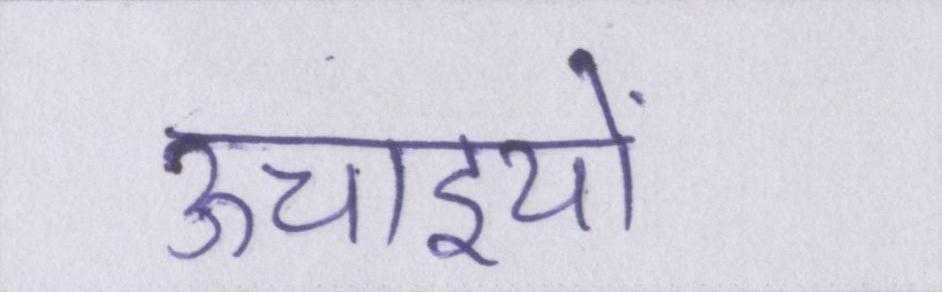 ऊचाइयों